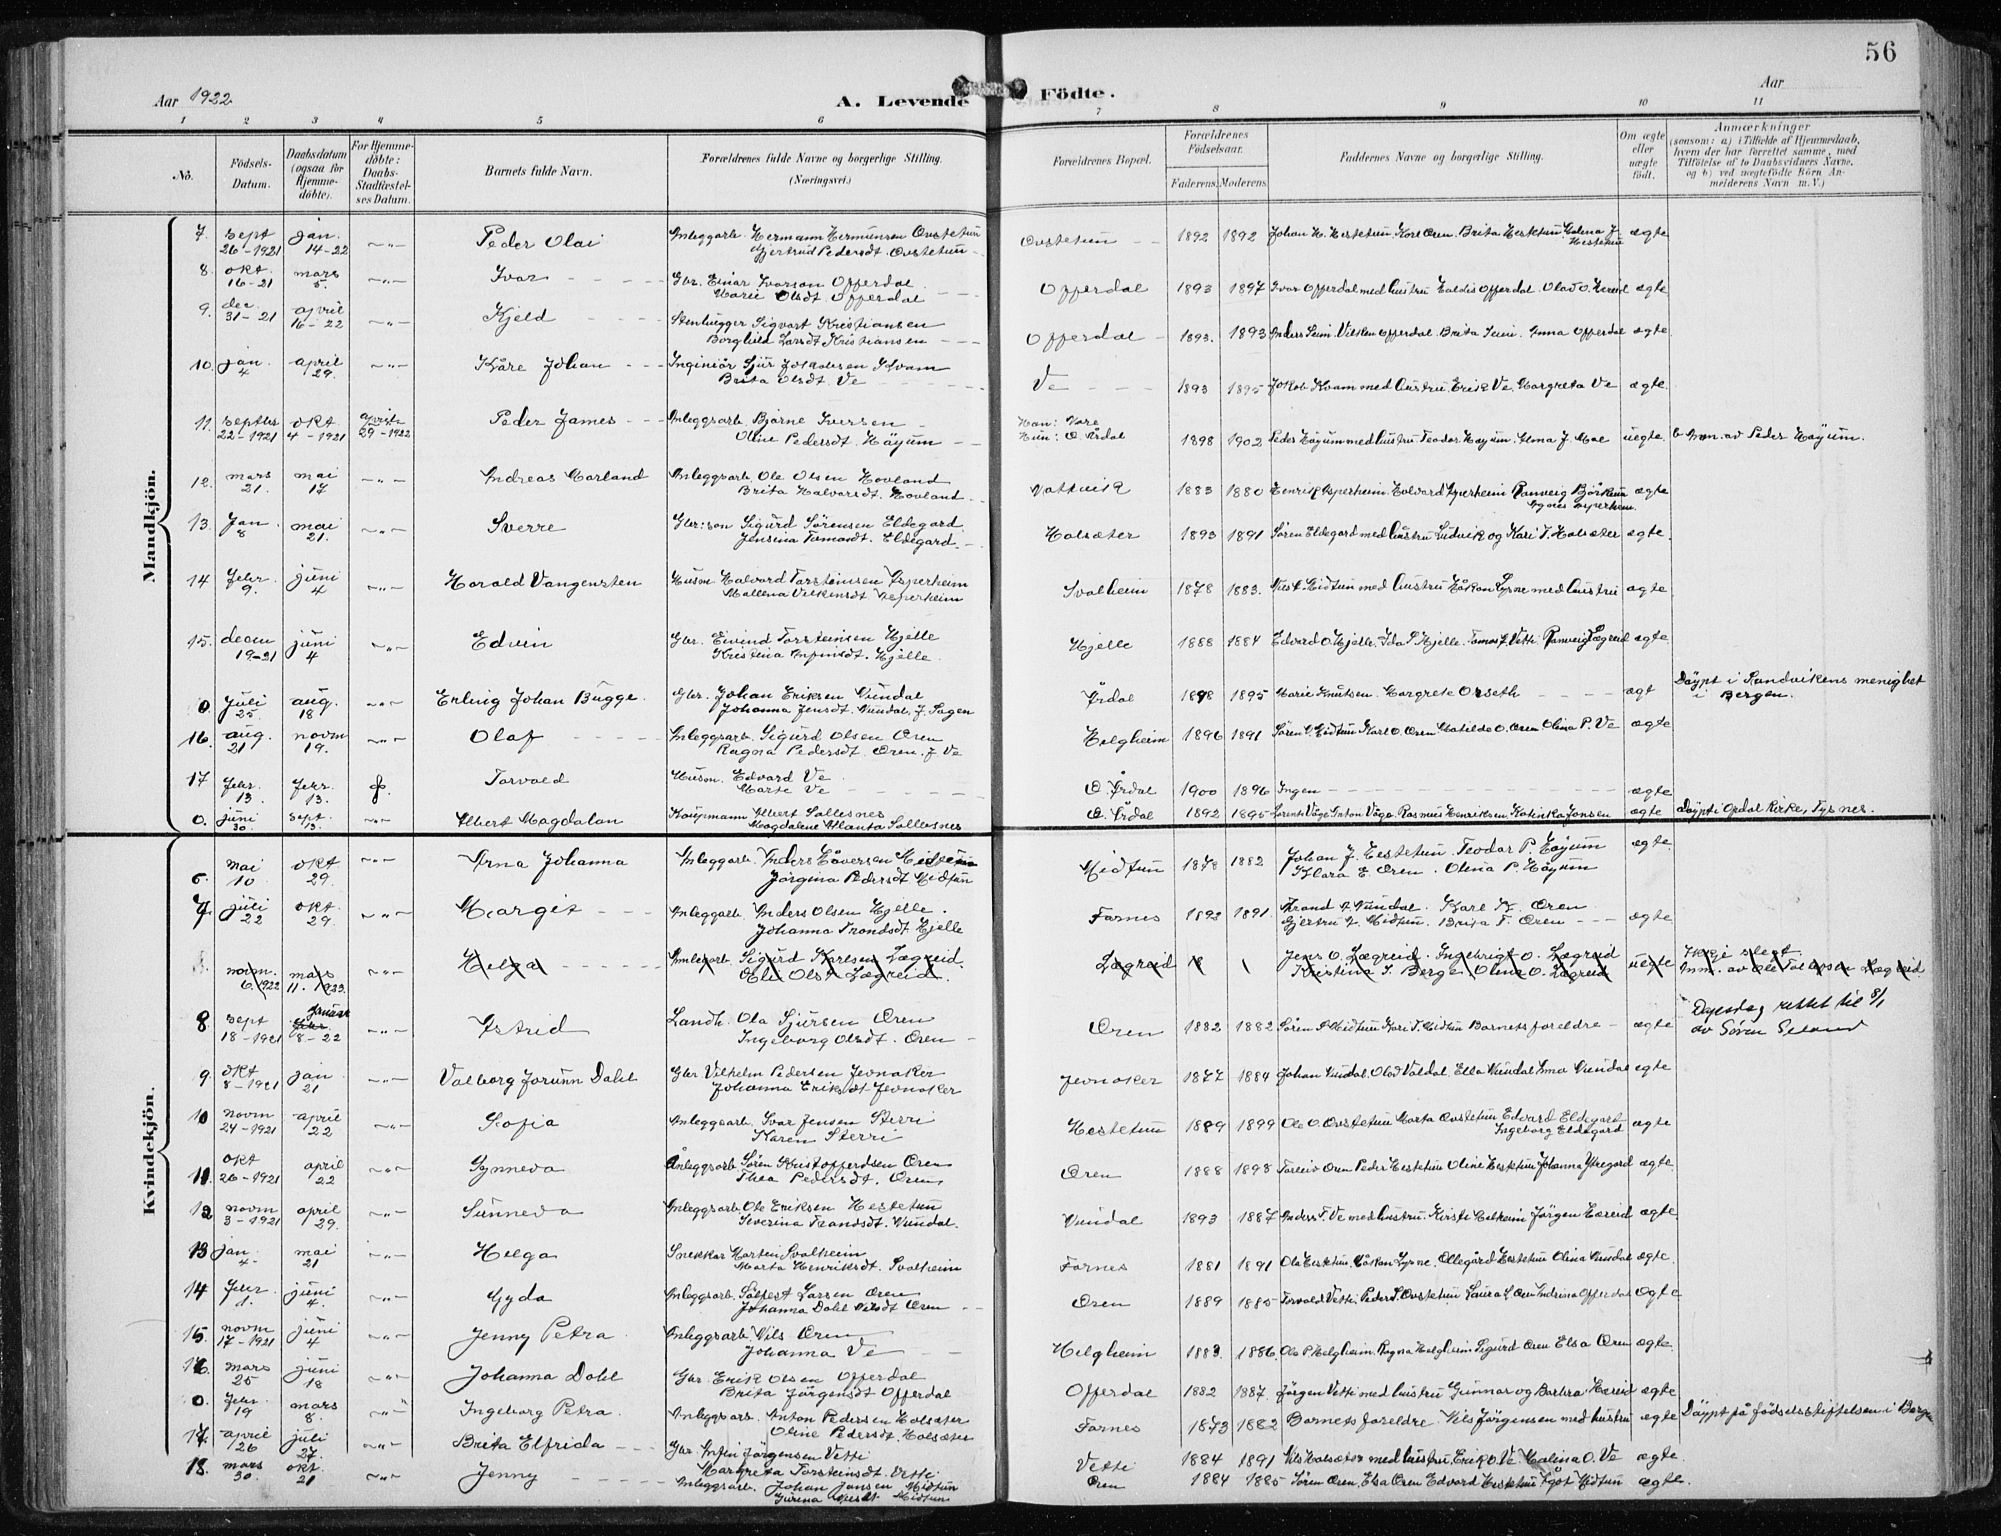 56
Aar 1922
A. Levende Födte.
Aar
1 2 3 4 5 6 7 8 9 10 11
No.
Födsels-Datum.
Daabsdatum (ogsaa for Hjemme-döbte).
For Hjemme-döbte: Daabs-Stadfæstel-ses Datum.
Barnets fulde Navn.
Forældrenes fulde Navne og borgerlige Stilling. (Næringsvei.)
Forældrenes Bopæl.
Forældrenes Födselsaar.
Faderens. Moderens.
Faddernes Navne og borgerlige Stilling.
Om ægte eller uægte födt.
Anmærkninger
(saasom: a) i Tilfælde af Hjemmedaab,
hvem der har forrettet samme, med
Tilföielse af to Daabsvidners Navne,
og b) ved uægtefödte Börn An-
melderens Navn m. V.)
Mandkjön.
7. sept 26-1921 jan. 14-22 -"- Peder Olai Anleggarb. Hermann Hermunsen Ovstetun Gjertrud Pedersdt. Ovstetun Ovstetun 1892 1892 Johan H. Hestetun. Karl Øren. Brita Hestetun. Helena J. Hestetun ægte
8. okt. 16-21 mars 5. -"- Ivar Gbr. Einar Ivarson Offerdal. Marie Olsdt. Offerdal Offerdal 1893 1897 Ivar Offerdal med hustru Eldis Offerdal. Olav O. Hæreid ægte
9. dec 31-21 april 16-22 -"- Kjeld Stenhugger Sigvart Kristiansen Borghild Larsdt Kristiansen Offerdal 1893. 1893 Anders Seim. Vilken Offerdal. Brita Seim. Anna Offerdal ægte
10. jan. 4 april 29. -"- Kåre Johan Ingeniör Sjur Jokobsen Kvam Brita Olsdt. Ve Ve 1893 1895 Jokob Kvam med hustru Erik Ve. Margreta Ve ægte.
11. septbr 22-1921 okt 4-1921 april 29-1922 Peder James Anleggsarb. Bjarne Iversen Oline Pedersdt. Höyum Han: Kare Hun: Ø. Årdal 1898 1902 Peder Höyum med hustru Teodor Höyum. Alma J. Moe uegte. b Anm. av Peder Höyum.
12. mars 21. mai 17 -"- Andreas Marland Anleggsarb. Ole Olsen Hovland Brita Halvorsdt. Hovland Nattvik 1883 1880 Henrik Asperheim. Halvard Asperheim Ranveig Björkum Agnes Asperheim. ægte
13. Jan. 8 mai 21. -"- Sverre Gbr:son Sigurd Sörensen Eldegard. Jensina Tomasdt. Eldegard. Holsæter 1893 1891 Sören Eldegard med hustru Ludvik og Kari T. Holsæter ægte.
14 febr. 9. juni 4 -"- Harald Vangensten Husm Halvard Torsteinsen Asperheim Mallena Vilkensdt Asperheim Svalheim 1878 1883. Midtun med hustru Håkon Lysne med hustru ægte
15. decem 19-21 juni 4 -"- Edvin Gbr. Eivind Torsteinsen Hjelle Kristina Anfinsdt. Hjelle. Hjelle 1888 1884 Edvard O Hjelle. Ida S Hjelle. Tomas T. Vetti Ranveig Lægreid ægte
0 Juli 25 aug. 18 -"- Erling Johan Bugge. Gbr. Johan Eriksen Vundal Johanna Jensdt. Vundal, f. Sagen Årdal 1898 1895 Marie Knutsen. Margrete Orseth ægt Döypt i Sandvikens menighet i Bergen.
16. aug. 21 novm 19. -"- Olaf Anleggsarb. Sigurd Olsen Øren Ragna Pedersdt. Øren, f. Ve Helgheim 1896 1891 Sören S. Midtun Karl O. Øren Matilde O. Øren Olina P. Ve ægte
17 febr. 13. febr. 13. Torvald Husm. Edvard Ve Marte Ve Ø. Årdal 1900 1896 Ingen ægte
0. juni 30. sept. 3. -"- Albert Magdalon Kaupmann Albert Sollesnes Magdalene Atlanta Sollesnes Ø. Årdal 1892 1895 Lorents Våge Anton Våge. Rasmus Henriksen Katinka Jansen ægte döypt i Opdal Kirke, Tysnes.
Kvindekjön.
6. mai 10 okt 29. -"- Arna Johanna Anleggarb. Anders Håversen Midtun Jörgina Pedersdt Midtun Midtun 1878 1882 Johan J. Hestetun. Teodor P. Höyum Klara E. Øren. Olina P. Höyum ægte.
7. juli 22 okt. 29 -"- Margit Anleggarb. Anders Olsen Hjelle. Johanna Trondsdt. Hjelle Farnes 1892 1891. Trand A. Vundal. Karl K. Øren Gjertru A. Midtun. Brita T. Øren ægte
novm. 6. 1922 mars 11. 1923. -"- Helga Anlegarb. Sigurd Karlsen Lægreid. Olsdt Lægreid Lægreid Jens O. Lægreid. Ingebrigt O. Lægreid Kristina I. Berge Olina O. Lægreid uegte
8 sept 18-1921 januar febr. 8-22 -"- Astrid Landh. Ola Sjursen Øren Ingeborg Olsdt. Øren Øren 1882 1882 Sören A. Midtun Kari T. Midtun Barnets foreldre ægte Døpsdag rettet til 8/1 av Sören Seland
9 okt 8-1921 jan 21 -"- Valborg Jorunn Dahl Gbr Vilhelm Pedersen Jevnaker Johanna Eriksdt Jevnaker Jevnaker 1877 1884 Johan Vundal. Olav Valdal. Elsa Vundal Anna Vundal ægte
10 novm 24-1921 april 22 -"- Sofia Anleggsarb. Ivar Jensen Sterri Karen Sterri Hestetun 1889 1899 Ole O. Ovstetun Marta Ovstetun Edvard Eldegard Ingeborg Eldegard ægte
11. okt 26-1921 april 22 -"- Synneva Anleggsarb. Sören Kristoffersen Øren Thea Pedersdt. Øren, Øren 1888 1898 Torleiv Øren Peder Hestetun Oline Hestetun Johanna Ytregard ægte.
12 novm 3-1921 april 29. -"- Sunneva Anleggsarb. Ole Eriksen Hestetun Severina Trandsdt. Vundal. Vundal 1893 1887 Anders T. Ve med hustru. Kirsti Melheim Jörgen Hæreid ægte.
13 jan. 4. mai 21 -"- Helga Snekkar Marten Svalheim Marta Henriksdt. Svalheim Farnes 1881 1891 Ola Hestetun. Håkon Lysne. Ollegård Hestetun Olina Vundal ægte.
14 febr. 1. juni 4. -"- Gyda Anleggsarb. Sölfest Larsen Øren Johanna Dahl Nilsdt Øren Øren 1889 1885 Torvald Vetti. Peder S. Ovstetun Laura S. Øren Andrina Offerdal ægte
15. novm 17-1921 juni 4 -"- Jenny Petra Anleggsarb. Nils Øren Johanna Ve Helgheim 1883. 1886. Ole P. Helgheim. Ragna Helgheim Sigurd Øren Elsa Øren ægte.
16 mars 25 juni 18 -"- Johanna Dahl Gbr. Erik Olsen Offerdal Brita Jörgensdt Offerdal Offerdal 1882 1887 Jörgen Vetti med hustru Gunnar og Barbra Hæreid ægte.
0. febr. 19 mars 8. -"- Ingeborg Petra. Anleggsarb. Anton Pedersen Holsæter Oline Pedersdt. Holsæter Farnes 1873 1882 Barnets foreldre. Nils Jörgensen med hustru ægte Döypt på födselsstiftelsen i Bergen
17. april 26 juli 27. -"- Brita Elfrida Gbr. Anfin Jörgensen Vetti Margreta Torsteinsdt. Vetti Vetti 1884 1891 Nils Holsæter med hustru. Erik O. Ve. Malina O. Ve ægte.
18. mars 30. okt. 21 -"- Jenny Anleggsarb. Johan Jansen Midtun Midtun Øren 1884 1885 Sören Øren. Elsa Øren Edvard Hestetun Ågot Midtun ægte.